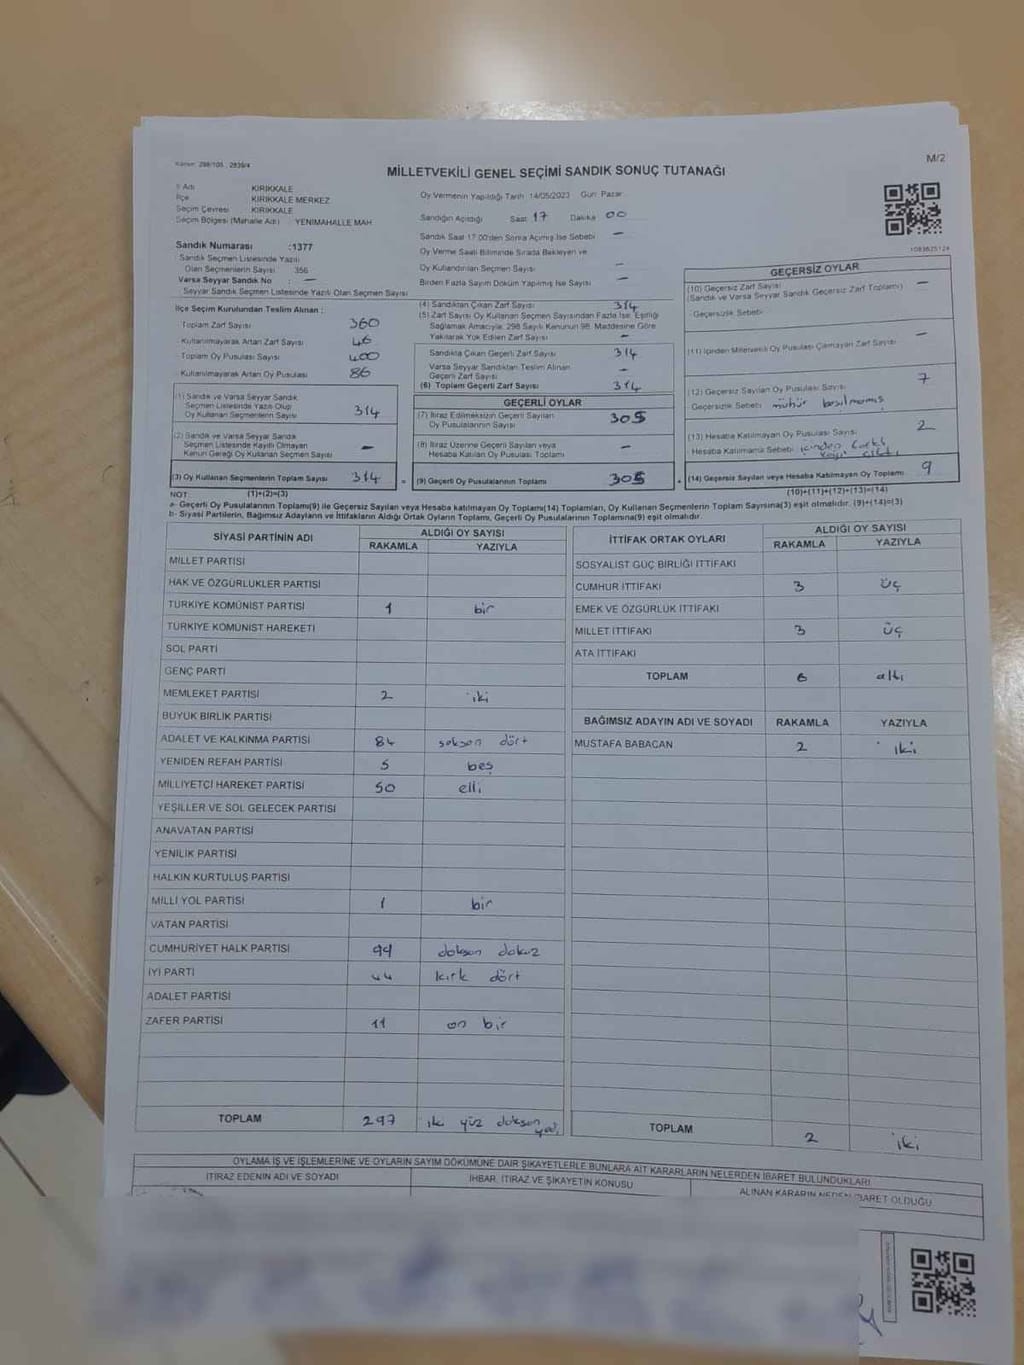 Kanun: 298/105 , 2839/4
MİLLETVEKİLİ GENEL SEÇİMİ SANDIK SONUÇ TUTANAĞI
M/2
İl Adı KIRIKKALE
İlçe KIRIKKALE MERKEZ
Seçim Çevresi KIRIKKALE
Seçim Bölgesi (Mahalle Adı) YENİMAHALLE MAH
Sandık Numarası :1377
Sandık Seçmen Listesinde Yazılı
Olan Seçmenlerin Sayısı 356
Varsa Seyyar Sandık No : —
Seyyar Sandık Seçmen Listesinde Yazılı Olan Seçmen Sayısı
Oy Vermenin Yapıldığı Tarih 14/05/2023 Gün Pazar
Sandığın Açıldığı Saat 17 Dakika 00
Sandık Saat 17:00'den Sonra Açılmış İse Sebebi —
Oy Verme Saati Bitiminde Sırada Bekleyen ve
Oy Kullandırılan Seçmen Sayısı —
Birden Fazla Sayım Döküm Yapılmış İse Sayısı —
1083625124
İlçe Seçim Kurulundan Teslim Alınan :
Toplam Zarf Sayısı 360
Kullanılmayarak Artan Zarf Sayısı 46
Toplam Oy Pusulası Sayısı 400
Kullanılmayarak Artan Oy Pusulası 86
(1) Sandık ve Varsa Seyyar Sandık
Seçmen Listesinde Yazılı Olup
Oy Kullanan Seçmenlerin Sayısı 314
(2) Sandık ve Varsa Seyyar Sandık
Seçmen Listesinde Kayıtlı Olmayan
Kanun Gereği Oy Kullanan Seçmen Sayısı —
(3) Oy Kullanan Seçmenlerin Toplam Sayısı 314
(4) Sandıktan Çıkan Zarf Sayısı 314
(5) Zarf Sayısı Oy Kullanan Seçmen Sayısından Fazla İse, Eşitliği
Sağlamak Amacıyla, 298 Sayılı Kanunun 98. Maddesine Göre
Yakılarak Yok Edilen Zarf Sayısı —
Sandıkta Çıkan Geçerli Zarf Sayısı 314
Varsa Seyyar Sandıktan Teslim Alınan
Geçerli Zarf Sayısı —
(6) Toplam Geçerli Zarf Sayısı 314
GEÇERLİ OYLAR
(7) İtiraz Edilmeksizin Geçerli Sayılan
Oy Pusulalarının Sayısı 305
(8) İtiraz Üzerine Geçerli Sayılan veya
Hesaba Katılan Oy Pusulası Toplamı —
(9) Geçerli Oy Pusulalarının Toplamı 305
GEÇERSİZ OYLAR
(10) Geçersiz Zarf Sayısı —
(Sandık ve Varsa Seyyar Sandık Geçersiz Zarf Toplamı)
Geçersizlik Sebebi
(11) İçinden Milletvekili Oy Pusulası Çıkmayan Zarf Sayısı —
(12) Geçersiz Sayılan Oy Pusulası Sayısı 7
Geçersizlik Sebebi mühür basılmamış
(13) Hesaba Katılmayan Oy Pusulası Sayısı 2
Hesaba Katılmama Sebebi içinden farklı
çıktı
(14) Geçersiz Sayılan veya Hesaba Katılmayan Oy Toplamı 9
NOT: (1)+(2)=(3)
(10)+(11)+(12)+(13)=(14)
a- Geçerli Oy Pusulalarının Toplamı(9) ile Geçersiz Sayılan veya Hesaba katılmayan Oy Toplamı(14) Toplamları, Oy Kullanan Seçmenlerin Toplam Sayısına(3) eşit olmalıdır. (9)+(14)=(3)
b- Siyasi Partilerin, Bağımsız Adayların ve İttifakların Aldığı Ortak Oyların Toplamı, Geçerli Oy Pusulalarının Toplamına(9) eşit olmalıdır.
SİYASİ PARTİNİN ADI ALDIĞI OY SAYISI
RAKAMLA YAZIYLA
MİLLET PARTİSİ
HAK VE ÖZGÜRLÜKLER PARTİSİ
TÜRKİYE KOMÜNİST PARTİSİ 1 bir
TÜRKİYE KOMÜNİST HAREKETİ
SOL PARTİ
GENÇ PARTİ
MEMLEKET PARTİSİ 2 iki
BÜYÜK BİRLİK PARTİSİ
ADALET VE KALKINMA PARTİSİ 84 seksen dört
YENİDEN REFAH PARTİSİ 5 beş
MİLLİYETÇİ HAREKET PARTİSİ 50 elli
YEŞİLLER VE SOL GELECEK PARTİSİ
ANAVATAN PARTİSİ
YENİLİK PARTİSİ
HALKIN KURTULUŞ PARTİSİ
MİLLİ YOL PARTİSİ 1 bir
VATAN PARTİSİ
CUMHURİYET HALK PARTİSİ 99 doksan dokuz
İYİ PARTİ 44 kırk dört
ADALET PARTİSİ
ZAFER PARTİSİ 11 on bir
TOPLAM 297 iki yüz doksan yedi
İTTİFAK ORTAK OYLARI ALDIĞI OY SAYISI
RAKAMLA YAZIYLA
SOSYALİST GÜÇ BİRLİĞİ İTTİFAKI
CUMHUR İTTİFAKI 3 üç
EMEK VE ÖZGÜRLÜK İTTİFAKI
MİLLET İTTİFAKI 3 üç
ATA İTTİFAKI
TOPLAM 6 altı
BAĞIMSIZ ADAYIN ADI VE SOYADI RAKAMLA YAZIYLA
MUSTAFA BABACAN 2 iki
TOPLAM 2 iki
OYLAMA İŞ VE İŞLEMLERİNE VE OYLARIN SAYIM DÖKÜMÜNE DAİR ŞİKAYETLERLE BUNLARA AİT KARARLARIN NELERDEN İBARET BULUNDUKLARI
İTİRAZ EDENİN ADI VE SOYADI İHBAR, İTİRAZ VE ŞİKAYETİN KONUSU ALINAN KARARIN NEDEN İBARET OLDUĞU